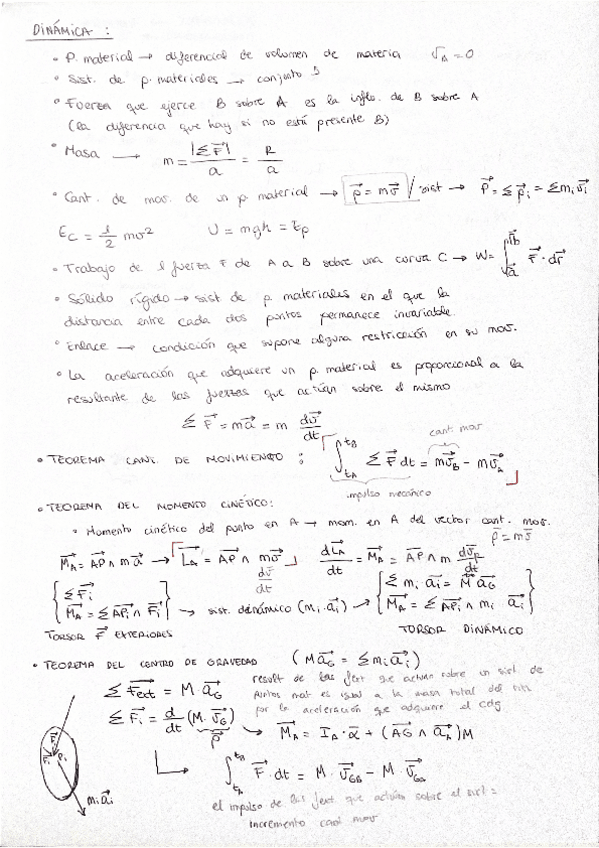 DINÁMICA :
• P. material → diferencial de volumen de materia
• Sist. de p. materiales → conjunto
• Fuerza que ejerce B sobre A es la influ. de B sobre A
(la diferencia que hay si no está presente B)
• Masa → m = |Σ F⃗| / a = R / a
• Cant. de mov. de un p. material → p⃗ = m v⃗ / sist → P⃗ = Σ p⃗i = Σ mi v⃗i
Ec = 1/2 mv² U = mgh = Ep
• Trabajo de 1 fuerza F de A a B sobre una curva C → W = ∫ F⃗ · dr⃗
• Sólido rígido → sist de p. materiales en el que la
distancia entre cada dos puntos permanece invariable.
• Enlace → condición que supone alguna restricción en su mov.
• La aceleración que adquiere un p. material es proporcional a la
resultante de las fuerzas que actúan sobre el mismo
Σ F⃗ = m a⃗ = m dv⃗/dt
cant. mov
• TEOREMA CANT. DE MOVIMIENTO : ∫ tA tB Σ F⃗ dt = m v⃗B − m v⃗A
impulso mecánico
• TEOREMA DEL MOMENTO CINÉTICO:
• Momento cinético del punto en A → mom. en A del vector cant. mov.
p⃗ = m v⃗
M⃗A = AP⃗ ∧ m a⃗ → L⃗A = AP⃗ ∧ m v⃗ dL⃗A/dt = M⃗A = AP⃗ ∧ m dv⃗p/dt
dv⃗/dt
{ Σ F⃗i Σ mi a⃗i = M a⃗G
M⃗A = Σ AP⃗i ∧ F⃗i } → sist. dinámico (mi · a⃗i) → { M⃗A = Σ AP⃗i ∧ mi a⃗i }
TORSOR F⃗ EXTERIORES TORSOR DINÁMICO
• TEOREMA DEL CENTRO DE GRAVEDAD ( M a⃗G = Σ mi a⃗i )
result de las fext que actúan sobre un sist de
Σ F⃗ext = M · a⃗G puntos mat es igual a la masa total del
por la aceleración que adquiere el cdg
Σ F⃗i = d/dt (M · v⃗G) → M⃗A = IA · α⃗ + (AG⃗ ∧ a⃗A) M
p⃗
∫ tA tB F⃗ · dt = M · v⃗GB − M · v⃗GA
mi a⃗i
el impulso de las fext que actúan sobre el sist =
incremento cant mov